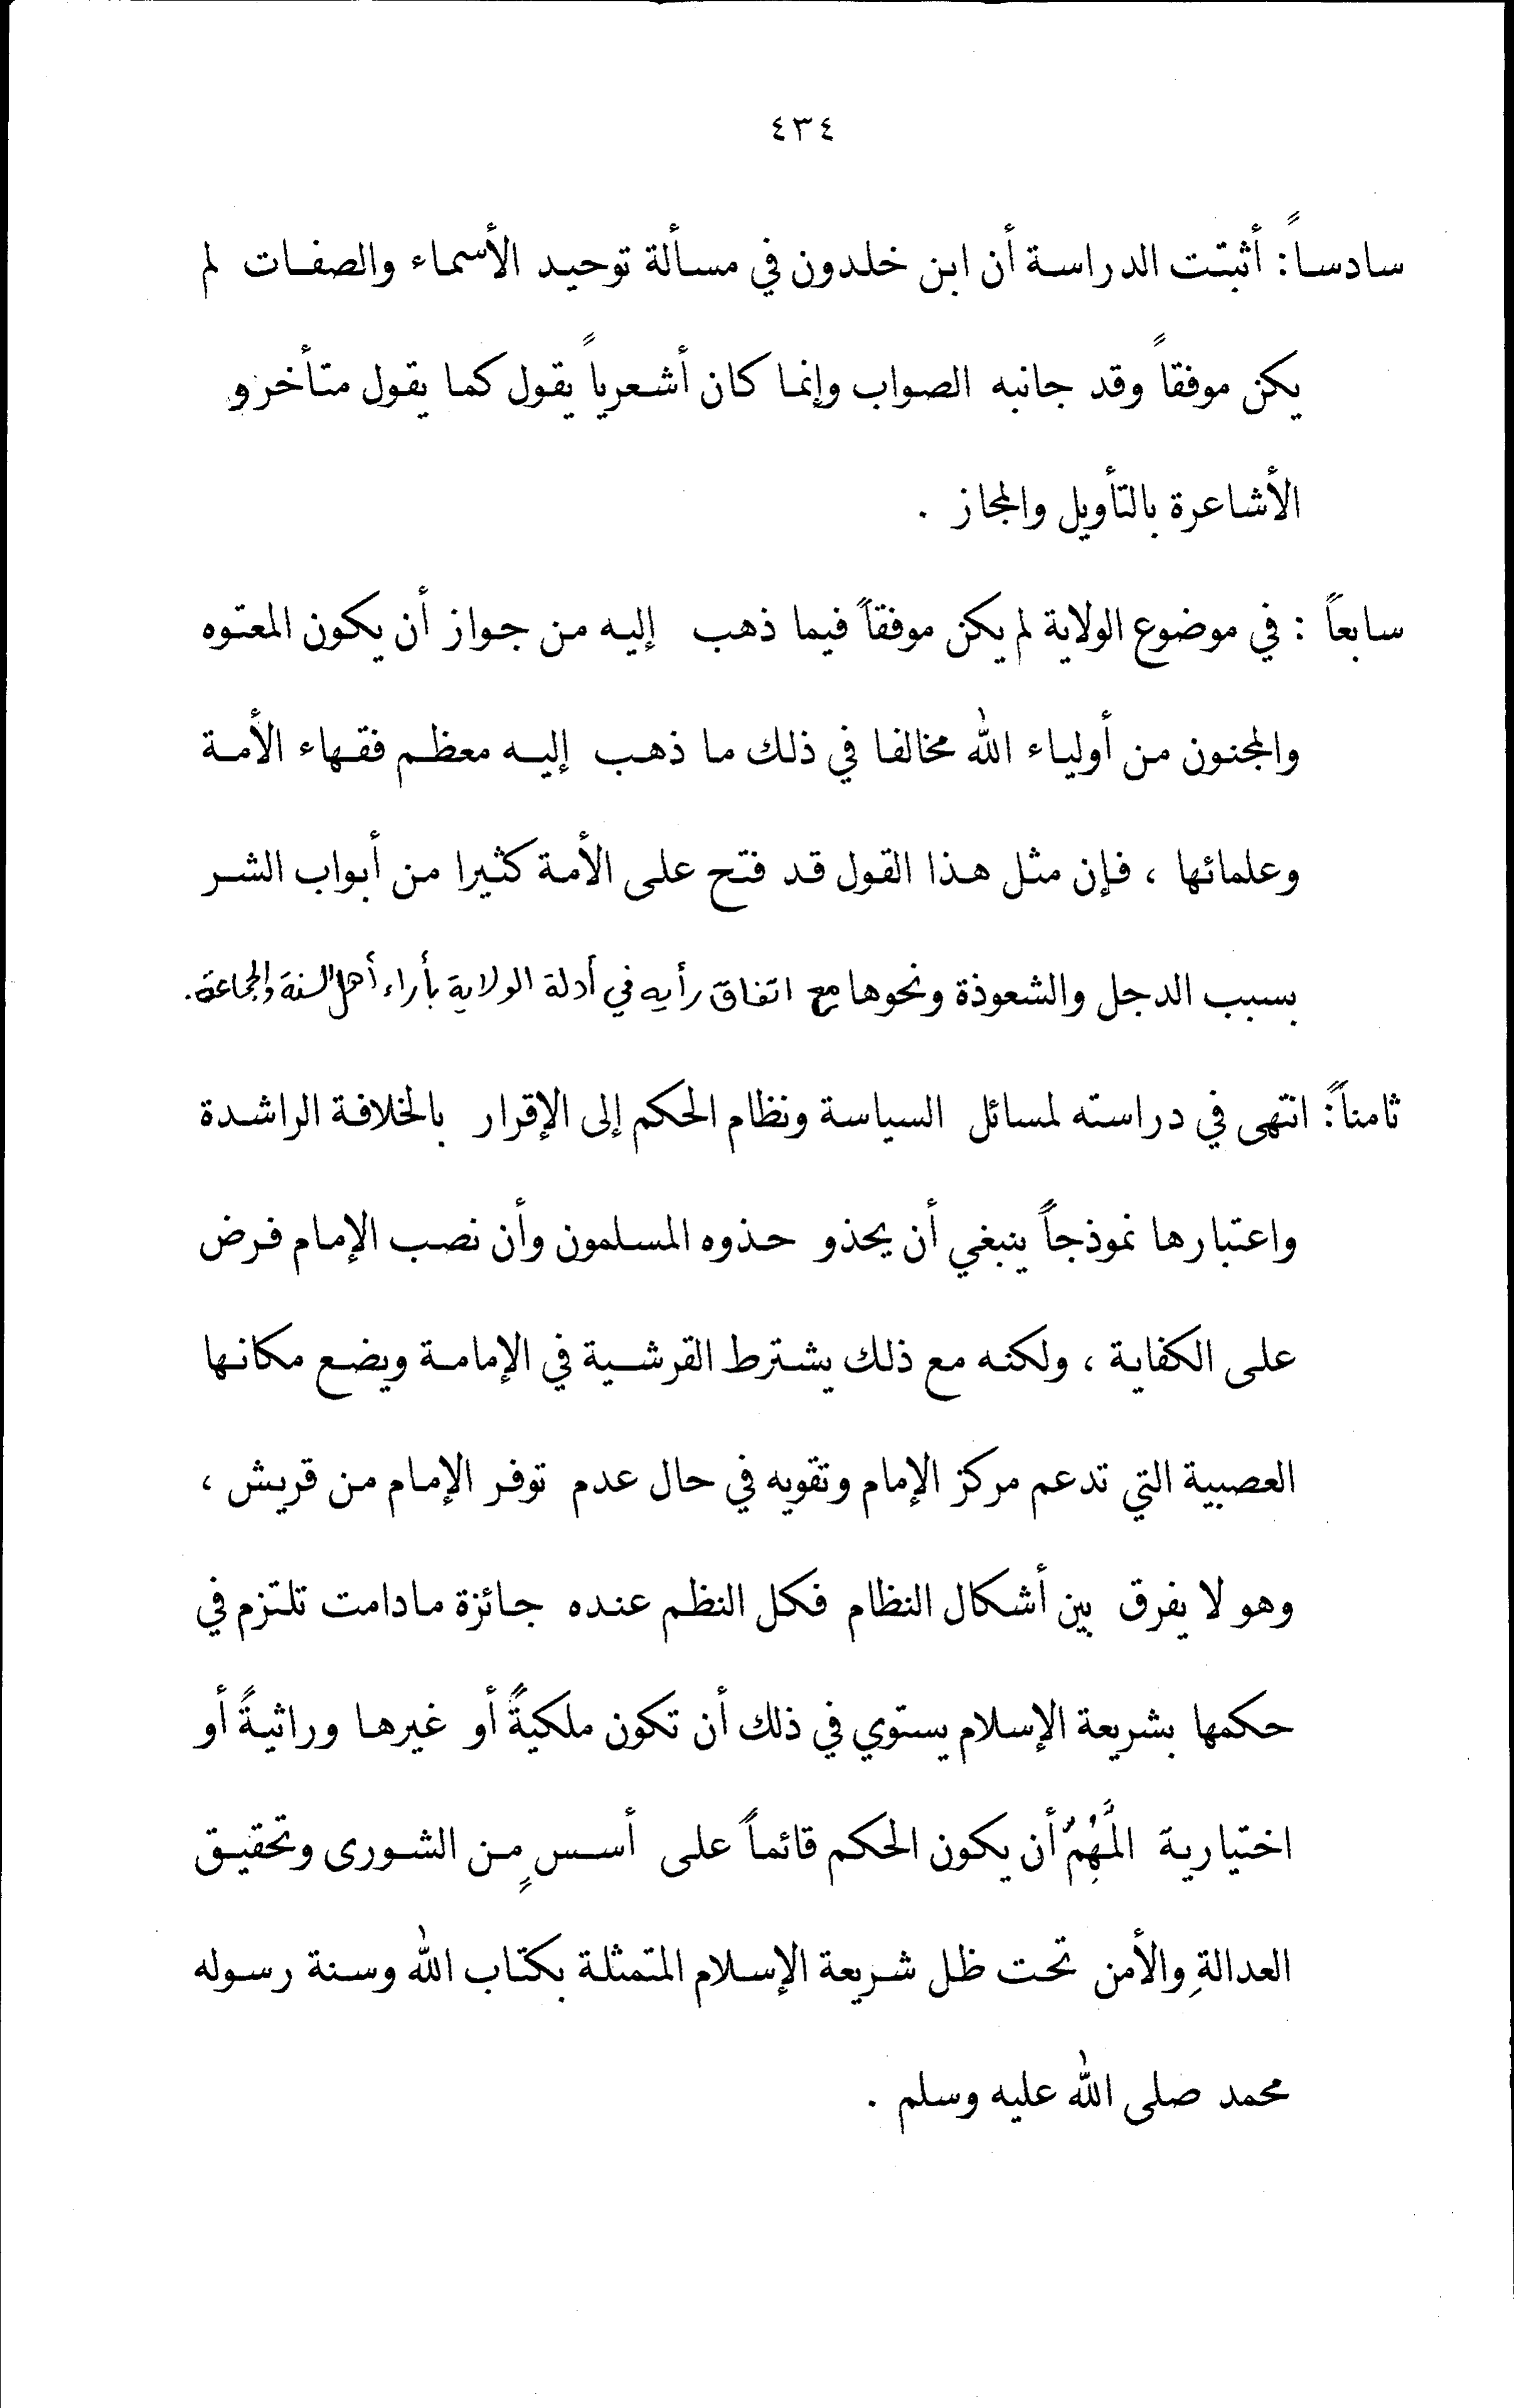 ٤٣٤
سادساً: أثبتت الدراسة أن ابن خلدون في مسألة توحيد الأسماء والصفات لم
يكن موفقاً وقد جانبه الصواب وإنما كان أشعرياً يقول كما يقول متأخرو
الأشاعرة بالتأويل والمجاز .
سابعاً : في موضوع الولاية لم يكن موفقاً فيما ذهب إليه من جواز أن يكون المعتوه
والمجنون من أولياء الله مخالفا في ذلك ما ذهب إليه معظم فقهاء الأمة
وعلمائها ، فإن مثل هذا القول قد فتح على الأمة كثيرا من أبواب الشر
بسبب الدجل والشعوذة ونحوها مع اتفاق رأيه في أدلة الولاية بأراء أهل السنة والجماعة .
ثامناً: انتهى في دراسته لمسائل السياسة ونظام الحكم إلى الإقرار بالخلافة الراشدة
واعتبارها نموذجاً ينبغي أن يحذو حذوه المسلمون وأن نصب الإمام فرض
على الكفاية ، ولكنه مع ذلك يشترط القرشية في الإمامة ويضع مكانها
العصبية التي تدعم مركز الإمام وتقويه في حال عدم توفر الإمام من قريش ،
وهو لا يفرق بين أشكال النظام فكل النظم عنده جائزة مادامت تلتزم في
حكمها بشريعة الإسلام يستوي في ذلك أن تكون ملكيةً أو غيرها وراثيةً أو
اختيارية المُهِمُّ أن يكون الحكم قائماً على أسسٍ من الشورى وتحقيق
العدالةِ والأمن تحت ظل شريعة الإسلام المتمثلة بكتاب الله وسنة رسوله
محمد صلى الله عليه وسلم .